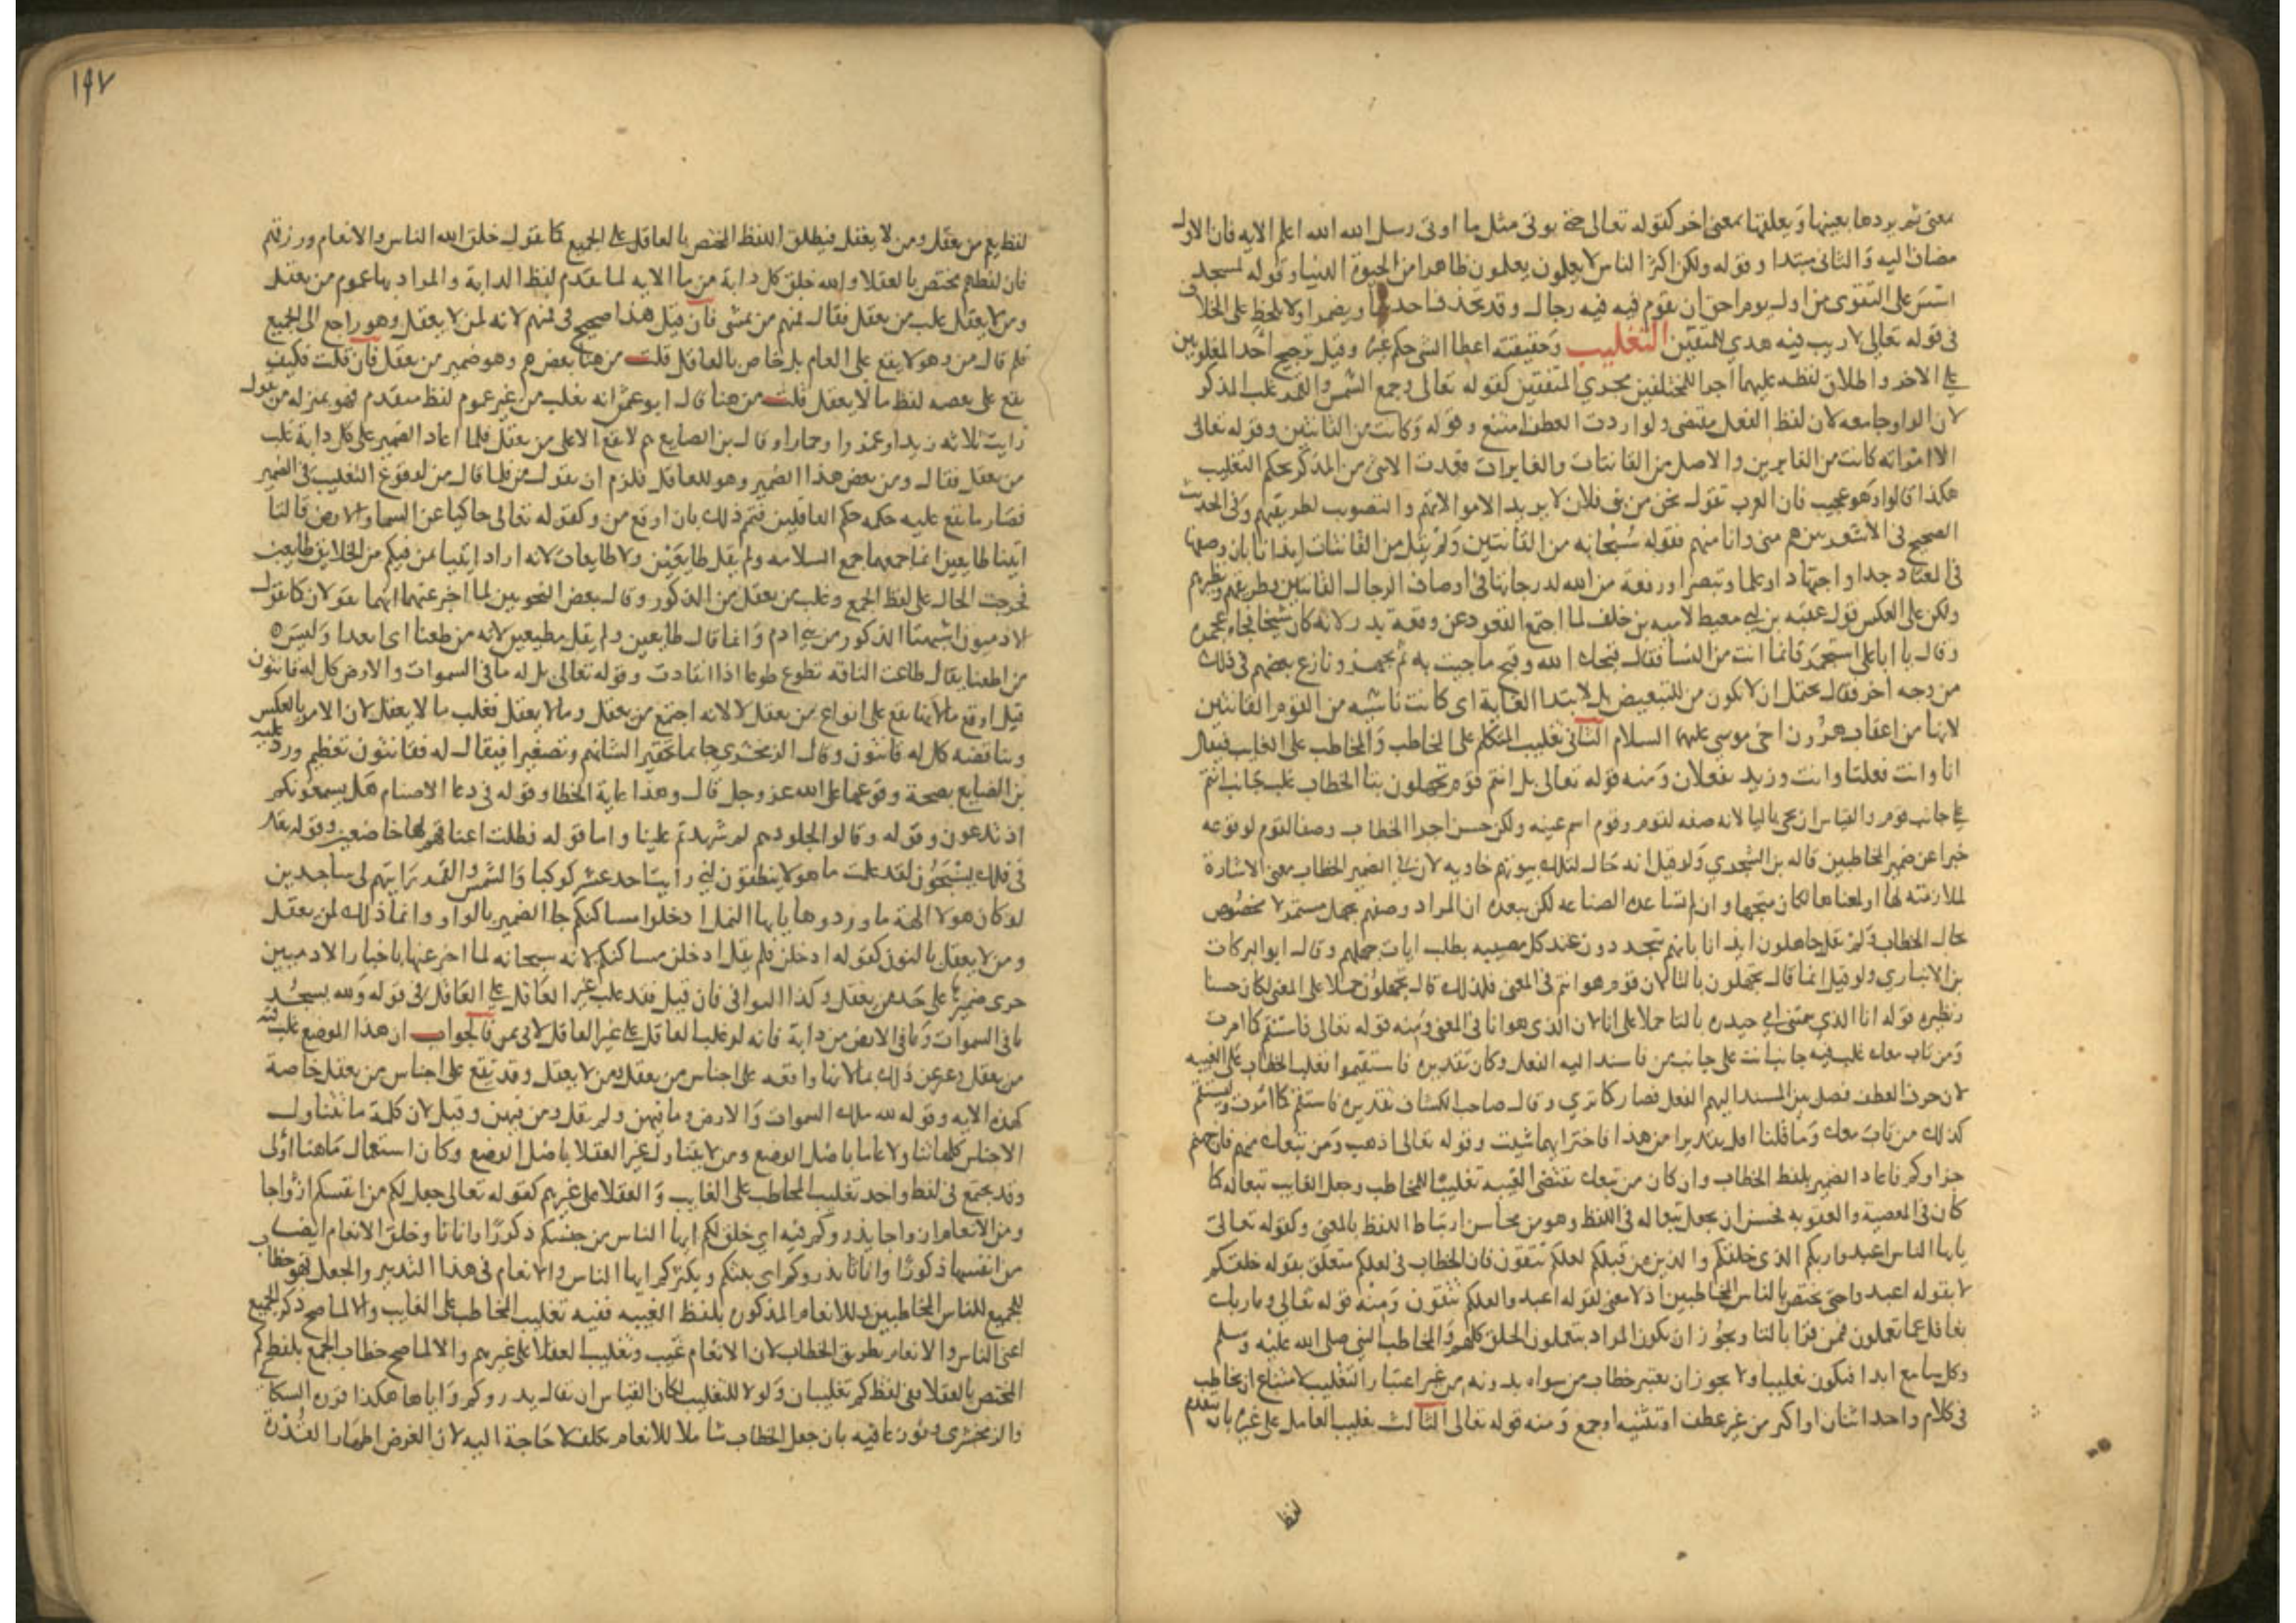 معنى ثم يردها بعينها ويعلقها بمعنى اخر كقوله تعالى حتى يوتى مثل ما اوتى رسل الله الله اعلم الايه فان الاول
مضاف اليه والثانى مبتدا وقوله ولكن اكثر الناس لا يعلمون يعلمون ظاهرا من الحيوة الدنيا وقوله لمسجد
اسس على التقوى من اول يوم احق ان تقوم فيه فيه رجال وقد يحذف احدها ويضمر او لا يلحظ على الخلاف
فى قوله تعالى لا ريب فيه هدي للمتقين التغليب وحقيقته اعطا الشى حكم غيره وقيل ترجيح احد المغلوبين
على الاخر واطلاق لفظه عليهما اجرا للمختلفين مجري المتفقين كقوله تعالى وجمع الشمس والقمر غلب المذكر
لان الواو جامعه لان لفظ الفعل مقتضى ولو اردت العطف امتنع وقوله وكانت من القانتين وقوله تعالى
الا امراته كانت من الغابرين والاصل من القانتات والغابرات فعدت الانثى من المذكر بحكم التغليب
هكذا قالوا وهو عجيب فان العرب تقول نحن من بنى فلان لا يريد الا موالاتهم والتصويب لطريقتهم وفى الحديث
الصحيح فى الاشعريين هم منى وانا منهم فقوله سبحانه من القانتين ولم يقل من القانتات ايذانا بان وضعها
فى العباد جدا واجتهادا وعلما وتبصرا ورفعة من الله لدرجاتها فى اوصاف الرجال القانتين وطريقهم ونظيرهم
ولكن على العكس قول عقبه بن ابى معيط لاميه بن خلف لما اجتمع القعود عن وقعه بدر لانه كان شيخا فجاء بمجمره
وقال يا ابا على استجمر فانما انت من النسا فقال قبحك الله وقبح ما جيت به ثم تجهز ونازع بعضهم فى ذلك
من وجه اخر فقال يحتمل ان لا تكون من للتبعيض بل لابتدا الغاية اى كانت ناشيه من القوم القانتين
لانها من اعقاب هرون اخى موسى عليهما السلام الثانى تغليب المتكلم على المخاطب والمخاطب على الغايب فيقال
انا وانت فعلنا وانت وزيد تفعلان ومنه قوله تعالى بل انتم قوم تجهلون بتا الخطاب غلب جانب انتم
على جانب قوم والقياس ان يجى باليا لانه صفه لقوم وقوم اسم غيبه ولكن حسن اجرا الخطاب وصفا لقوم لوقوعه
خبرا عن ضمير المخاطبين قاله بن الشجري ولو قيل انه حال لتلك بيوتهم خاويه لان فى الضمير الخطاب معنى الاشارة
لملازمته لها او لمعناها لكان متجها وان لم تساعده الصناعه لكن يبعده ان المراد وصفهم بجهل مستمر لا مخصوص
بحال الخطاب ولم يقل جاهلون ايذانا بانهم يتجددون عند كل مصيبه بطلب ايات جهلهم وقال ابو البركات
بن الانباري ولو قيل انما قال تجهلون بالتا لان قوم هو انتم فى المعنى فلذلك قال تجهلون حملا على المعنى لكان حسنا
ونظيره قوله انا الذي سمتنى امى حيدره بالتا حملا على انا لان الذى هو انا فى المعنى ومنه قوله تعالى فاستقم كما امرت
ومن تاب معك غلب فيه جانب انت على جانب من فاسند اليه الفعل وكان تقديره فاستقيموا فغلب الخطاب على الغيبه
لان حرف العطف فصل بين المسند اليهم الفعل فصار كما تري وقال صاحب الكشاف تقديره فاستقم كما امرت وليستقم
كذلك من تاب معك وما قلنا اقل تقديرا من هذا فاختر ايهما شيت وقوله تعالى اذهب ومن تبعك منهم فان جهنم
جزاوكم فاعاد الضمير بلفظ الخطاب وان كان من تبعك يقتضى الغيبه تغليبا للمخاطب وجعل الغايب تبعا له كما
كان فى المعصية والعقوبه فحسن ان يجعل تبعا له فى اللفظ وهو من محاسن ارتباط اللفظ بالمعنى وكقوله تعالى
يايها الناس اعبدوا ربكم الذى خلقكم والذين من قبلكم لعلكم تتقون فان الخطاب فى لعلكم متعلق بقوله خلقكم
لا بقوله اعبدوا حتى يختص بالناس المخاطبين اذ لا معنى لقوله اعبدوا لعلكم تتقون ومنه قوله تعالى وما ربك
بغافل عما تعملون فمن قرا بالتا ويجوز ان يكون المراد بتعملون الخلق كلهم والمخاطب النبى صلى الله عليه وسلم
وكل سامع ابدا فيكون تغليبا ولا يجوز ان يعتبر خطاب من سواه بدونه من غير اعتبار التغليب لامتناع ان يخاطب
فى كلام واحد اثنان او اكثر من غير عطف او تثنيه او جمع ومنه قوله تعالى الثالث تغليب العاقل على غيره بان يتقدم
لفظ
١٩٧
لفظ يعم من يعقل ومن لا يعقل فيطلق اللفظ المختص بالعاقل على الجميع كما تقول خلق الله الناس والانعام ورزقهم
فان لفظهم مختص بالعقلا والله خلق كل دابة من ما الايه لما تقدم لفظ الدابة والمراد بها عموم من يعقل
ومن لا يعقل غلب من يعقل فقال فمنهم من يمشى فان قيل هذا صحيح فى فمنهم لانه لمن لا يعقل وهو راجع الى الجميع
فلم قال من وهو لا يقع على العام بل خاص بالعاقل قلت من هنا بعض هم وهو ضمير من يعقل فان قلت فكيف
يقع على بعضه لفظ ما لا يعقل قلت من هنا قال ابو عمر انه تغلب من غير عموم لفظ متقدم فهو بمنزله من يقول
رايت ثلاثه زيدا وعمروا وحمارا وقال بن الصايغ هم لا تقع الا على من يعقل فلما اعاد الضمير على كل دابة غلب
من يعقل فقال ومن بعض هذا الضمير وهو للعاقل فلزم ان يقول من فلما قال من لوقوع التغليب فى الضمير
فصار ما يقع عليه حكمه حكم العاقلين فتمم ذلك بان اوقع من وكقوله تعالى حاكيا عن السما والارض قالتا
اتينا طايعين انما جمعهما جمع السلامه ولم يقل طايعتين ولا طايعات لانه اراد ايتيا بمن فيكم من الخلايق طايعين
فخرجت الحال على لفظ الجمع وغلب من يعقل من الذكور وقال بعض النحويين لما اخبر عنهما انهما يقولان كما تقول
الادميون اشبهتا الذكور من بنى ادم وانما قال طايعين ولم يقل مطيعين لانه من طعنا اى انقدنا وليس
من اطعنا يقال طاعت الناقه تطوع طوعا اذا انقادت وقوله تعالى بل له ما فى السموات والارض كل له قانتون
قيل اوقع ما لانها تقع على انواع من يعقل لانه اجتمع من يعقل وما لا يعقل فغلب ما لا يعقل لان الامر بالعكس
ويناقضه كل له قانتون وقال الزمخشري جا بما تحقيرا لشانهم وتصغيرا فيقال له فقانتون تعظيم ورد عليه
بن الضايع بصحة وقوعها على الله عز وجل قال وهذا غاية الخطا وقوله فى دعا الاصنام هل يسمعونكم
اذ تدعون وقوله وقالوا لجلودهم لم شهدتم علينا واما قوله فظلت اعناقهم لها خاضعين وقوله تعالى
فى فلك يسبحون لقد علمت ما هولا ينطقون انى رايت احد عشر كوكبا والشمس والقمر رايتهم لى ساجدين
لو كان هولا الهة ما وردوها يايها النمل ادخلوا مساكنكم جا الضمير بالواو وانما ذلك لمن يعقل
ومن لا يعقل بالنون كقوله ادخلن فلم يقل ادخلن مساكنكم لانه سبحانه لما اخبر عنها باخبار الادميين
جرى ضميرها على حد من يعقل وكذا البواقى فان قيل فقد غلب غير العاقل على العاقل فى قوله ولله يسجد
ما فى السموات وما فى الارض من دابة فانه لو غلب العاقل على غير العاقل لاتى بمن فالجواب ان هذا الموضع غلب فيه
من يعقل وعبر عن ذلك بما لانها واقعه على اجناس من يعقل ومن لا يعقل وقد تقع على اجناس من يعقل خاصة
كهذه الايه وقوله لله ملك السموات والارض وما فيهن ولم يقل ومن فيهن وقيل لان كلمة ما تتناول
الاجناس كلها تناولا عاما باصل الوضع ومن لا يتناول غير العقلا باصل الوضع وكان استعمال ما هنا اولى
وقد يجتمع فى لفظ واحد تغليب المخاطب على الغايب والعقلا على غيرهم كقوله تعالى جعل لكم من انفسكم ازواجا
ومن الانعام ازواجا يذروكم فيه اي خلق لكم ايها الناس من جنسكم ذكورا واناثا وخلق الانعام ايضا
من انفسها ذكورا واناثا يذروكم اى ينبتكم ويكثركم ايها الناس والانعام فى هذا التدبير والجعل فهو خطاب
للجميع للناس المخاطبين وللانعام المذكوره بلفظ الغيبه ففيه تغليب المخاطب على الغايب والا لما صح ذكر الجميع
اعنى الناس والانعام بطريق الخطاب لان الانعام غيب وتغليب العقلا على غيرهم والا لما صح خطاب الجمع بلفظ كم
المختص بالعقلا ففى لفظ كم تغليبان ولولا التغليب لكان القياس ان يقال يذروكم واياها هكذا قرره السكاكى
والزمخشرى ونوزعا فيه بان جعل الخطاب شاملا للانعام تكلف لا حاجة اليه لان الغرض اظهار القدرة